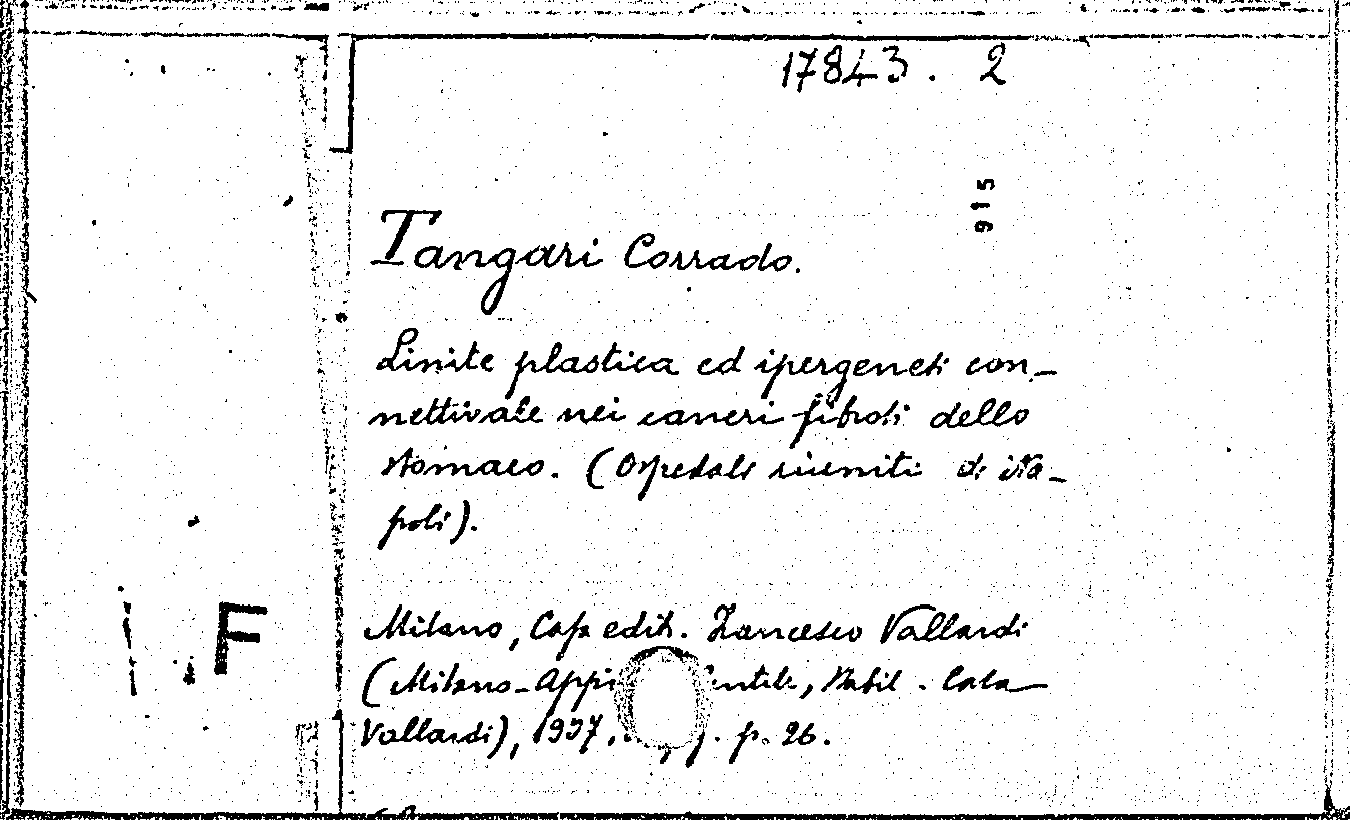 17843. 2
915
Tangari Corrado.
Linite plastica ed ipergenesi con-
nettivale nei cancri fibrosi dello
stomaco. (Ospedali riuniti di Na-
poli).
F
Milano, Casa edit. Francesco Vallardi
(Milano-Appi entile, Stabil. Casa
Vallardi), 1937, p. 26.